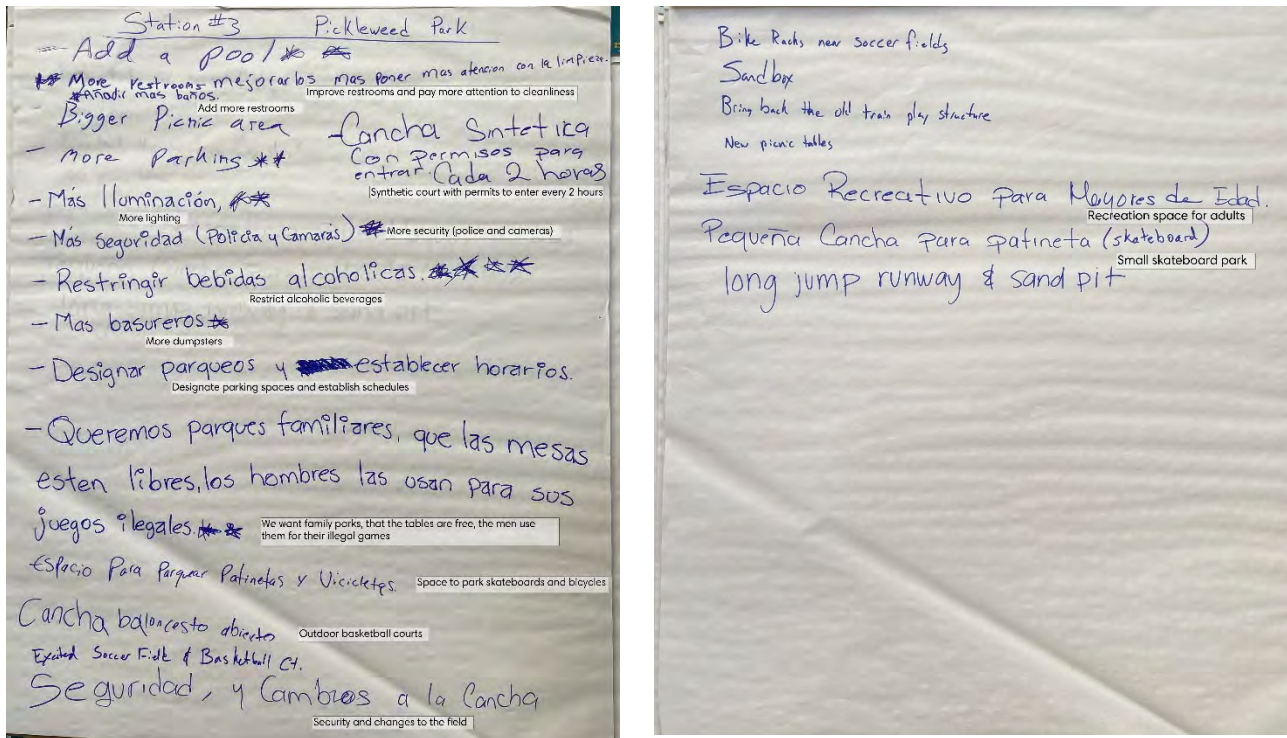 Station #3 Pickleweed Park
- Add a pool
More restrooms mejorarlos mas poner mas atencion con la limpieza.
Improve restrooms and pay more attention to cleanliness
Añadir mas baños.
Add more restrooms
Bigger Picnic area
- More Parking
- Cancha Sintetica
Con permisos para
entrar. Cada 2 horas
Synthetic court with permits to enter every 2 hours
- Más Iluminación,
More lighting
- Más seguridad (Policia y Camaras)
More security (police and cameras)
- Restringir bebidas alcoholicas.
Restrict alcoholic beverages
- Mas basureros
More dumpsters
- Designar parqueos y establecer horarios.
Designate parking spaces and establish schedules
- Queremos parques familiares, que las mesas
esten libres, los hombres las usan para sus
juegos ilegales.
We want family parks, that the tables are free, the men use
them for their illegal games
Espacio Para Parquear Patinetas y Vicicletas.
Space to park skateboards and bicycles
Cancha baloncesto abierto
Outdoor basketball courts
Excited Soccer Field & Basketball Ct.
Seguridad, y Cambios a la Cancha
Security and changes to the field
Bike Racks new soccer fields
Sandbox
Bring back the old train play structure
New picnic tables
Espacio Recreativo Para Mayores de Edad.
Recreation space for adults
Pequeña Cancha para patineta (skateboard)
Small skateboard park
long jump runway & sand pit